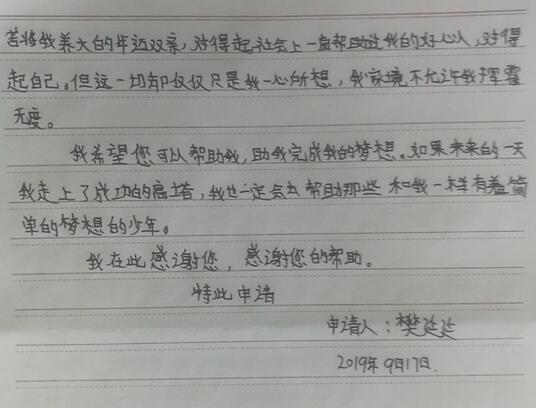 苦将我养大的年迈双亲，对得起社会上一直帮助过我的好心人，对得
起自己。但这一切却仅仅只是我一心所想，我家境不允许我挥霍
无度。
我希望您可以帮助我，助我完成我的梦想。如果未来的一天
我走上了成功的高塔，我也一定会去帮助那些和我一样有着简
单的梦想的少年。
我在此感谢您，感谢您的帮助。
特此申请
申请人：樊延延
2019年9月17日.